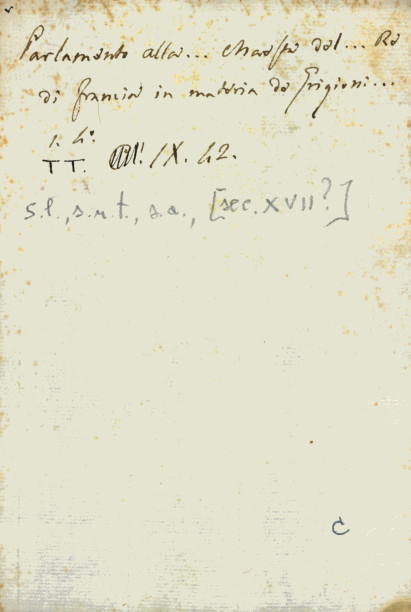 Parlamento alla... Maestà del... Re
di francia in materia de Grigioni...
1. 4°.
TT. IX. 42.
s.l., s.n.t., s.a., [sec. XVII?]
C